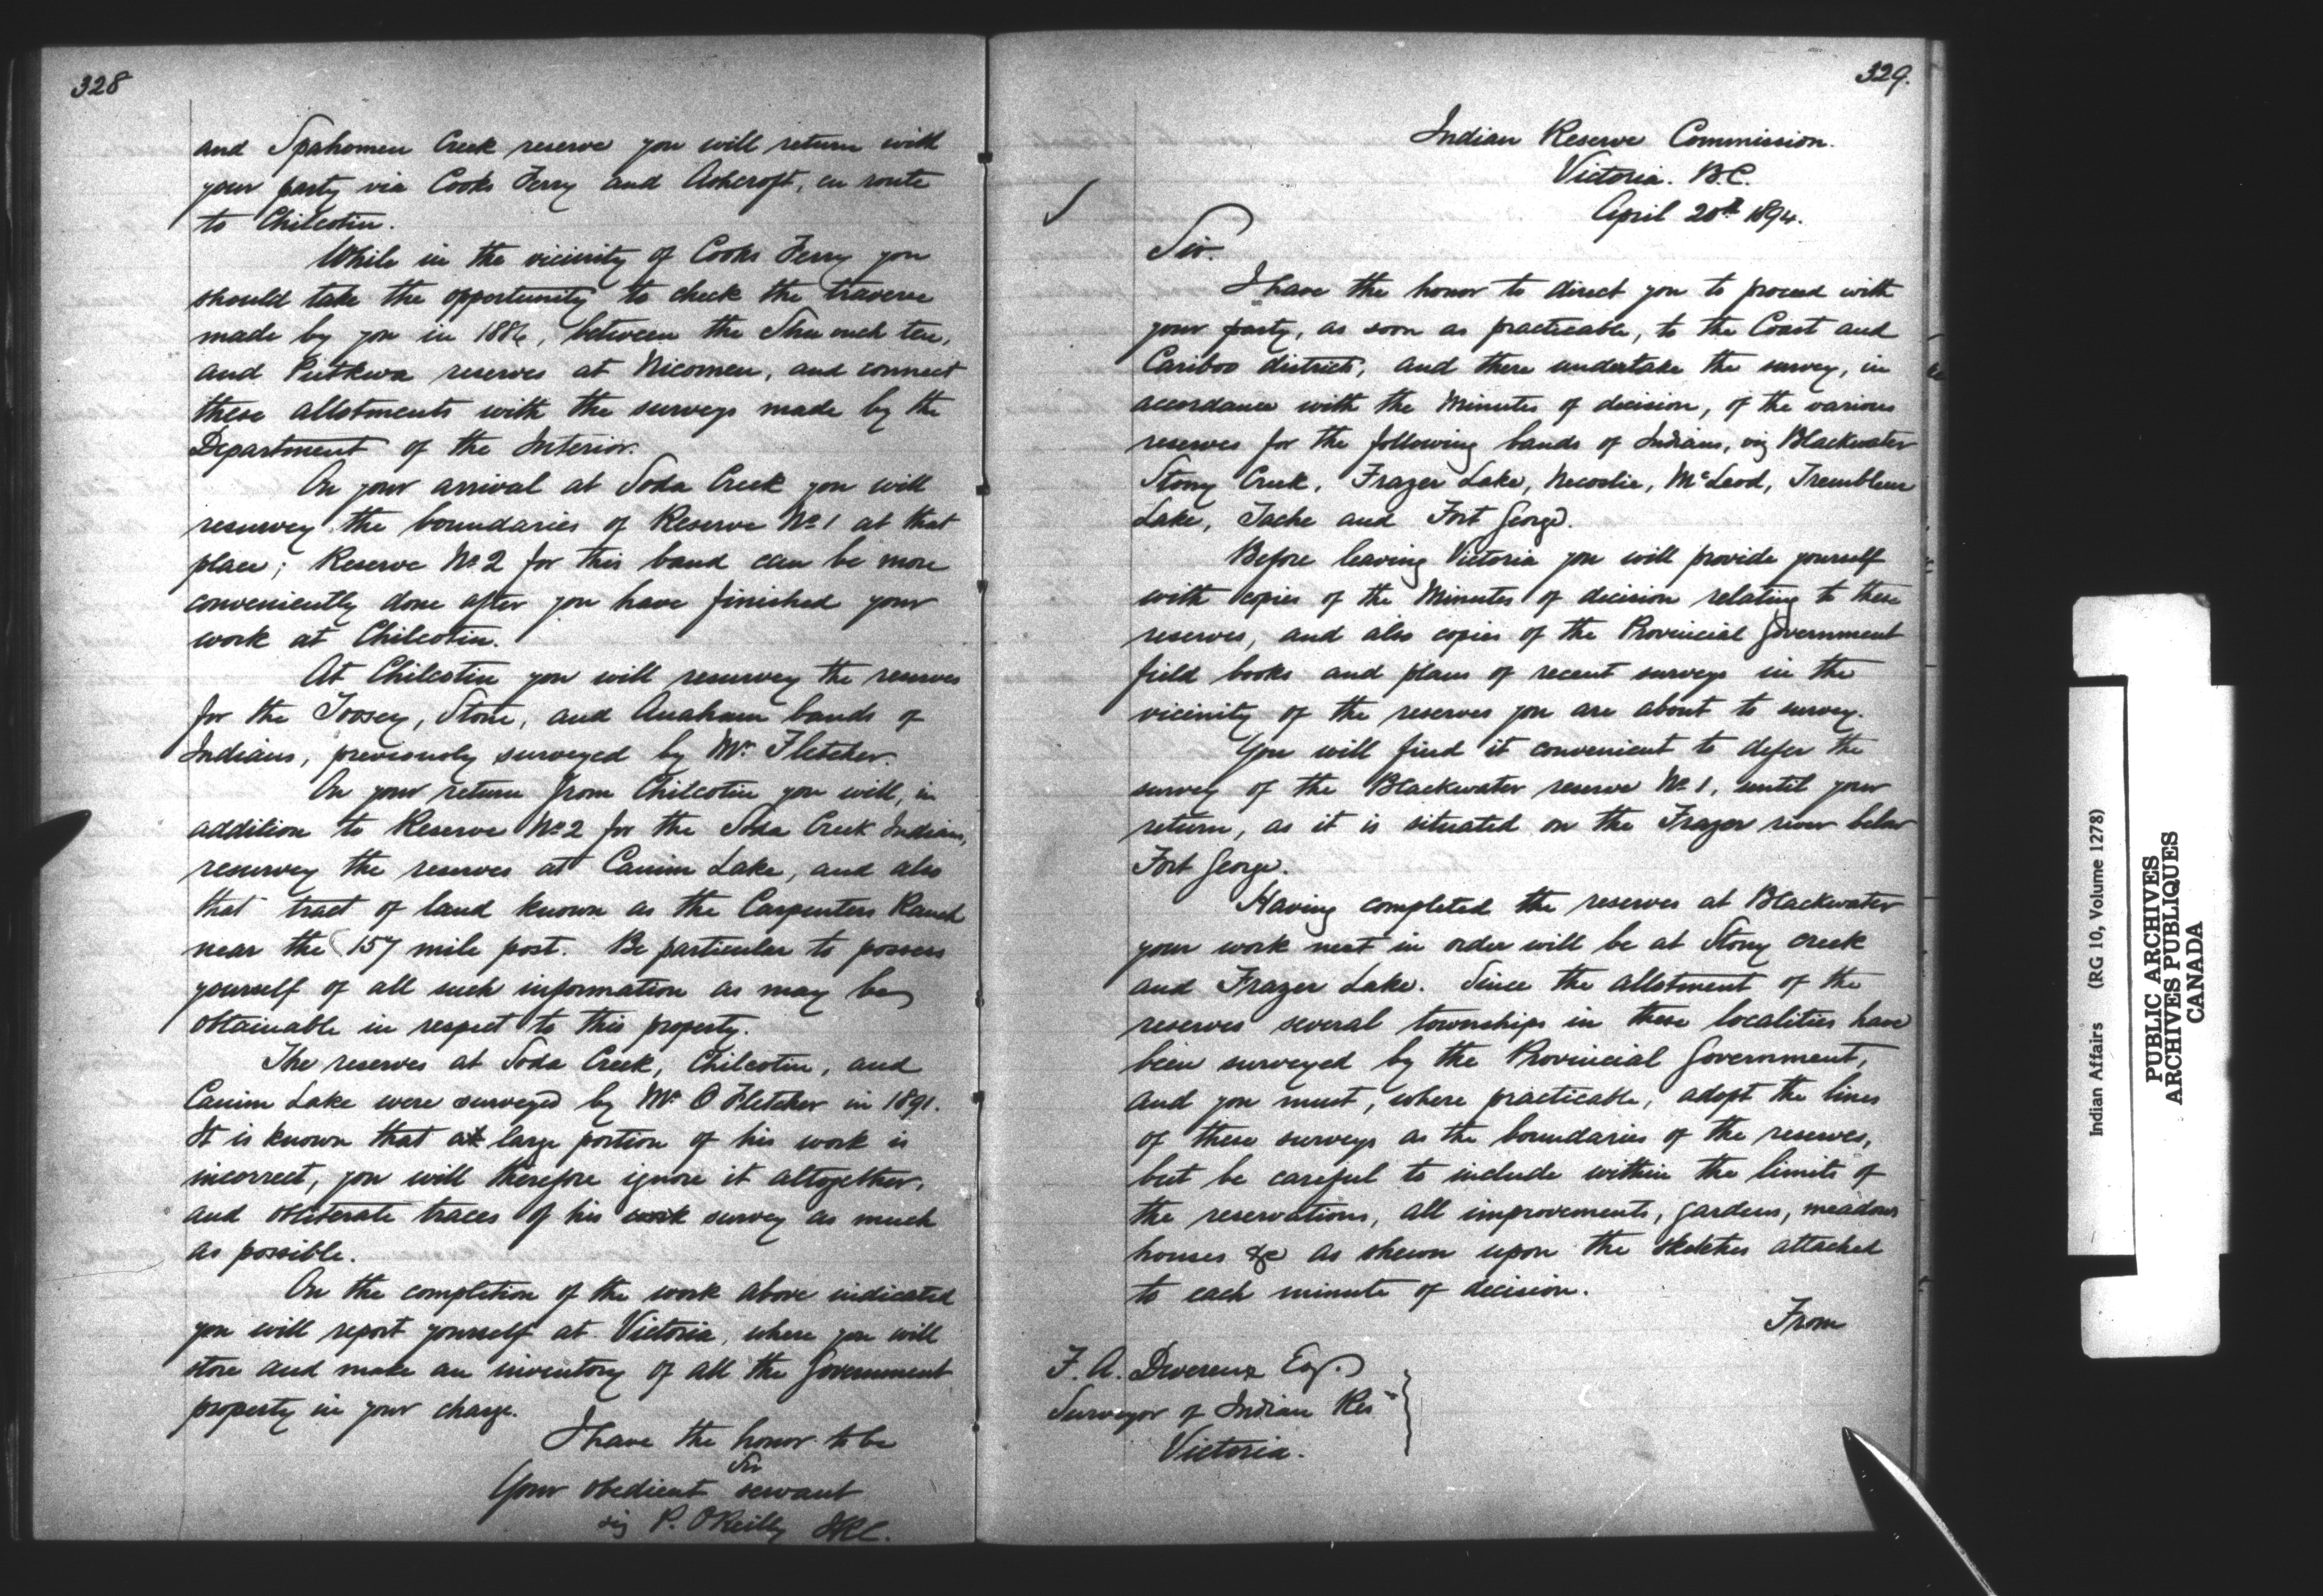 328
and Spahomen Creek reserve you will return with
your party via Cooks Ferry and Ashcroft, en route
to Chilcotin.
While in the vicinity of Cooks Ferry you
should take the opportunity to check the traverse
made by you in 1886, between the Shu ouch ten,
and Putkwa reserves at Nicomen, and connect
these allotments with the surveys made by the
Department of the Interior.
On your arrival at Soda Creek you will
resurvey the boundaries of Reserve No 1 at that
place; Reserve No 2 for this band can be more
conveniently done after you have finished your
work at Chilcotin.
At Chilcotin you will resurvey the reserves
for the Toosey, Stone, and Anaham bands of
Indians, previously surveyed by Mr. Fletcher.
On your return from Chilcotin you will, in
addition to Reserve No 2 for the Soda Creek Indians,
resurvey the reserves at Canim Lake, and also
that tract of land known as the Carpenters Ranch
near the 157 mile post. Be particular to possess
yourself of all such information as may be
obtainable in respect to this property.
The reserves at Soda Creek, Chilcotin, and
Canim Lake were surveyed by Mr O Fletcher in 1891.
It is known that a large portion of his work is
incorrect, you will therefore ignore it altogether,
and obliterate traces of his work survey as much
as possible.
On the completion of the work above indicated
you will report yourself at Victoria, where you will
store and make an inventory of all the Government
property in your charge.
I have the honor to be
Sir
Your obedient servant
sig P. O'Reilly IRC.
329.
Indian Reserve Commission.
Victoria. B.C.
April 20th 1894.
Sir.
I have the honor to direct you to proceed with
your party, as soon as practicable, to the Coast and
Cariboo districts, and there undertake the survey, in
accordance with the Minutes of decision, of the various
reserves for the following bands of Indians, viz Blackwater
Stony Creek, Frazer Lake, Necoslie, McLeod, Trembleur
Lake, Tache and Fort George.
Before leaving Victoria you will provide yourself
with copies of the Minutes of decision relating to these
reserves, and also copies of the Provincial Government
field books and plans of recent surveys in the
vicinity of the reserves you are about to survey.
You will find it convenient to defer the
survey of the Blackwater reserve No 1, until your
return, as it is situated on the Frazer river below
Fort George.
Having completed the reserves at Blackwater
your work next in order will be at Stony creek
and Frazer Lake. Since the allotment of the
reserves several townships in these localities have
been surveyed by the Provincial Government,
and you must, where practicable, adopt the lines
of these surveys as the boundaries of the reserves,
but be careful to include within the limits of
the reservations, all improvements, gardens, meadows
houses &c as shewn upon the sketches attached
to each minute of decision.
From
F. A. Devereux Esq.
Surveyor of Indian Res
Victoria.
Indian Affairs (RG 10, Volume 1278)
PUBLIC ARCHIVES
ARCHIVES PUBLIQUES
CANADA